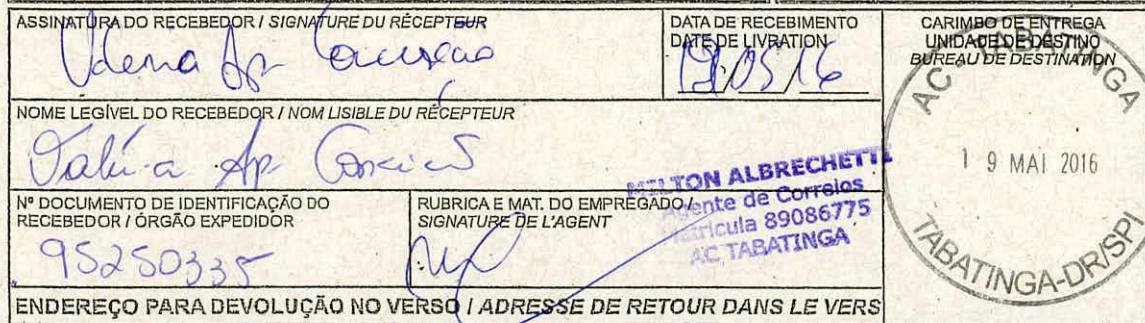 ASSINATURA DO RECEBEDOR / SIGNATURE DU RÉCEPTEUR
Ap
DATA DE RECEBIMENTO
DATE DE LIVRATION
19/05/16
CARIMBO DE ENTREGA
UNIDADE DE DESTINO
BUREAU DE DESTINATION
AC TABATINGA
19 MAI 2016
TABATINGA-DR/SPI
NOME LEGÍVEL DO RECEBEDOR / NOM LISIBLE DU RÉCEPTEUR
Ap
Nº DOCUMENTO DE IDENTIFICAÇÃO DO
RECEBEDOR / ÓRGÃO EXPEDIDOR
95250335
RUBRICA E MAT. DO EMPREGADO /
SIGNATURE DE L'AGENT
MILTON ALBRECHETTI
Agente de Correios
Matrícula 89086775
AC TABATINGA
ENDEREÇO PARA DEVOLUÇÃO NO VERSO / ADRESSE DE RETOUR DANS LE VERS